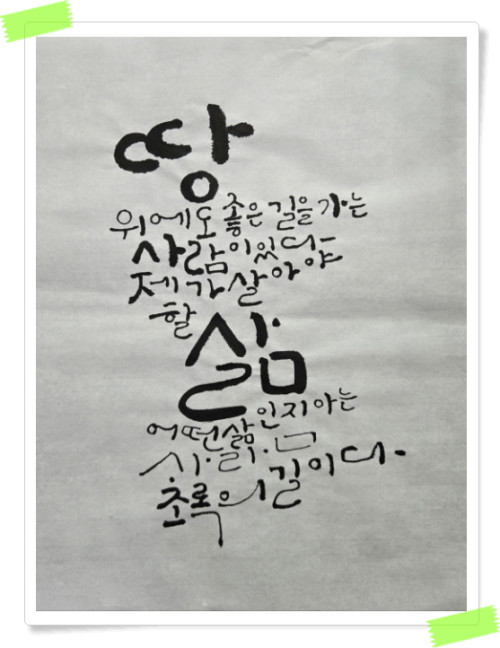 땅
위에도 좋은 길을 가는
사람이 있다
제가 살아야
할 삶
어떤 삶인지 아는
사람.
초록의 길이다.